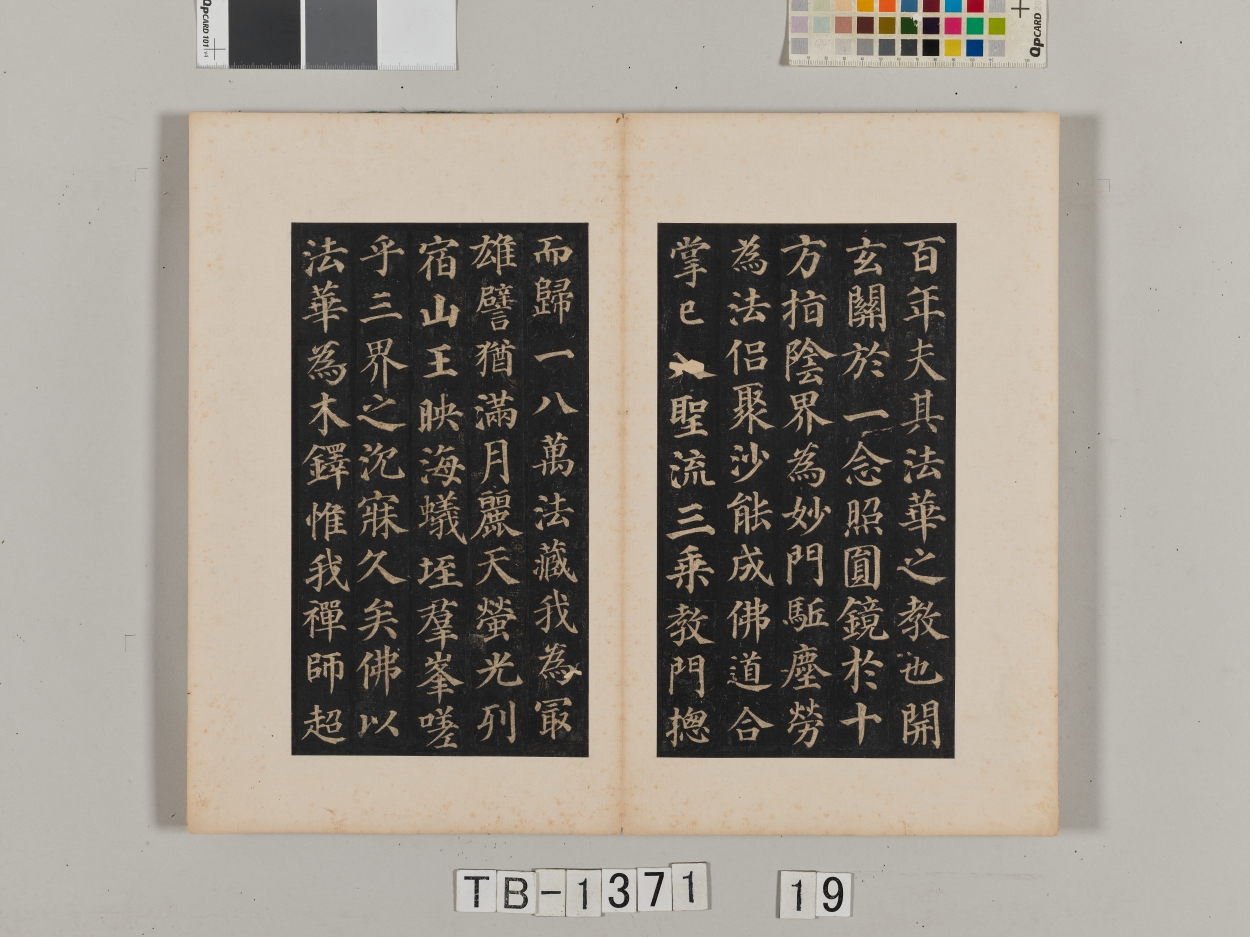 QPCARD 101
QPCARD
百年夫其法華之教也開
玄關於一念照圓鏡於十
方指陰界為妙門駈塵勞
為法侶聚沙能成佛道合
掌已入聖流三乗教門揔
而歸一八萬法藏我為冣
雄譬猶滿月麗天螢光列
宿山王映海蟻垤羣峯嗟
乎三界之沉寐久矣佛以
法華為木鐸惟我禪師超
TB-1371 19